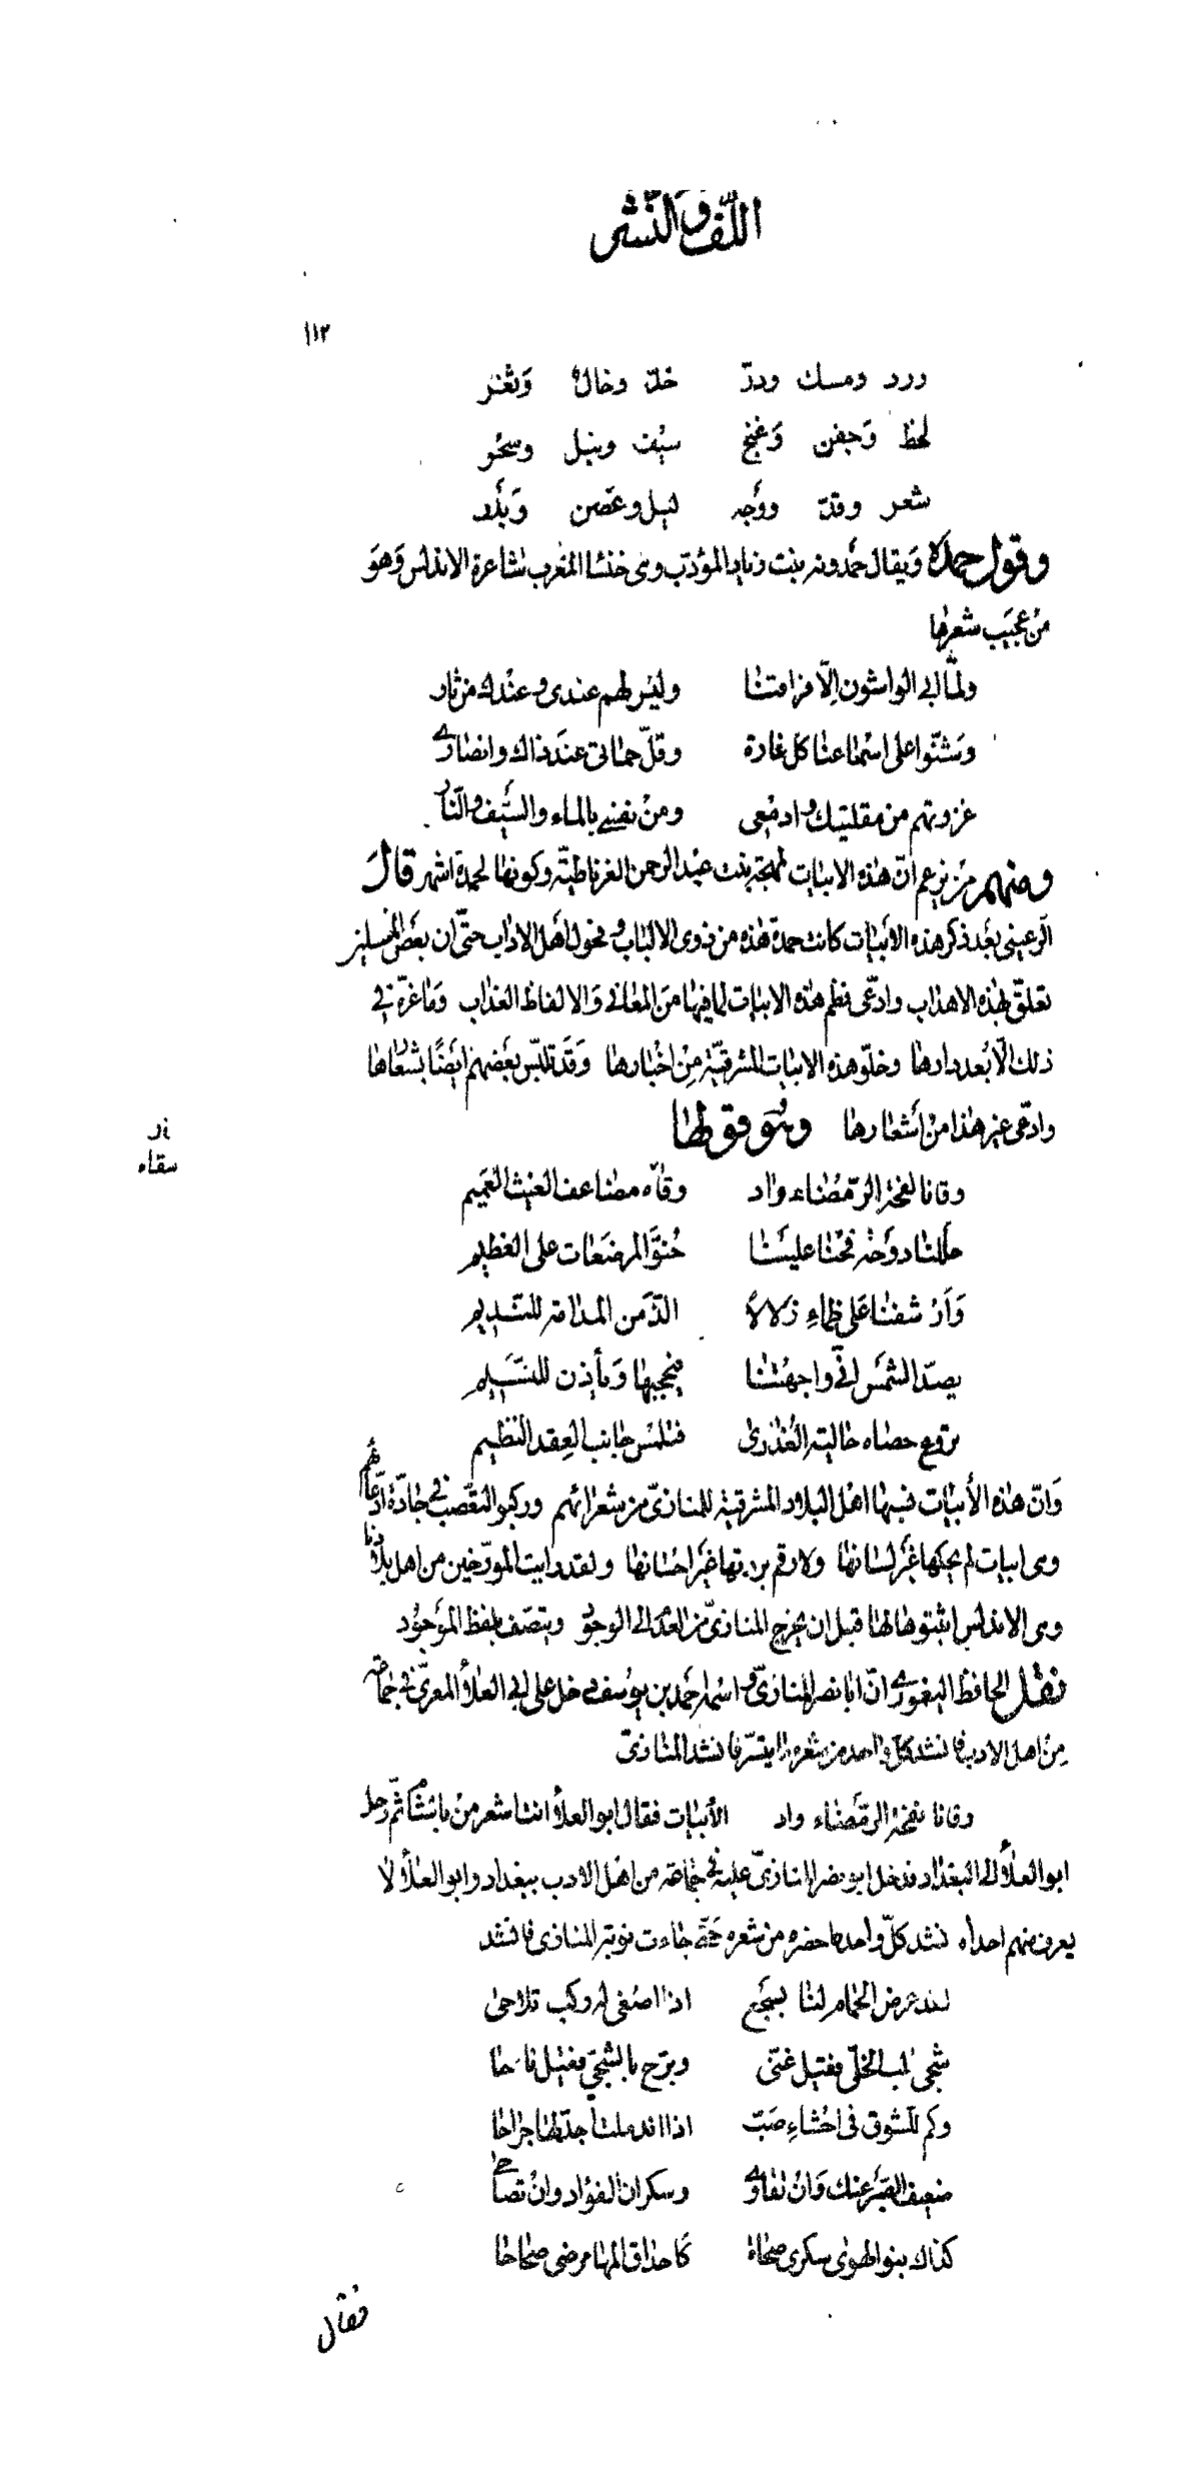 اللف والنشر
١١٢
ورد ومسك ودرّ خدّ وخال وَثغر
لحظ وَجفن وَغنج سيف ونبل وسحر
شعر وقدّ ووَجه ليل وغصن وَبَدر
وقول حمدة وَيقال حمدونه بنت زياد المؤدّب وهى خنسا المغرب شاعرة الاندلس وَهوَ
من عجيب شعرها
ولمّا ابى الواشون الّا فراقنا وليس لهم عندى وعندك من ثار
وَشنّوا على اسماعنا كل غارة وقلّ حماتى عند ذاك وانصارى
غزوتهم من مقلتيك وادمعى ومن نفسى بالماء والسّيف والنّار
ومنهم من يزعم انّ هذه الابيات لمهجة بنت عبد الرحمن الغرناطيّة وكونها لحمدة اشهر قال
الرعينى بعد ذكر هذه الأبيات كانت حمدة هذه من ذوى الالباب وفحول اهل الاداب حتّى ان بعض المنتحلين
تعلّق بهذه الاهداب وادّعى نظم هذه الابيات لما فيها من المعانى وَالالفاظ العذاب وَما غرّه فى
ذلك الّا بُعد دارها وخلو هذه الابيات المشرقيّة من اخبارها وَقَد تلبّس بعضهم ايضًا بشعارها
وادّعى غير هذا من أشعارها وهو قولها
وقانا لفحة الرّمضاء واد وقاه مضاعف الغيث العَميم
حللنا دوحه فحنا علينا حُنوّ المرضعات على الفطيم
وَأرشفنا على ظماءِ زلالاً الذّ من المدامة للنديم
يصدّ الشمس انّى واجهتنا فيحجبها وَيأذن للنسيم
تروع حصاه حالية العذارى فتلمس جانب العِقد النّظيم
وَانّ هذه الأبيات نسبها اهل البلاد المشرقية للمنازىّ من شعرائهم وركبوا التعصّب فى جادّة ادّعائهم
وهى ابيات لم يحكها غير لسانها ولا رقم بردتها غير احسانها ولقد رايت المورّخين من اهل بلادنا
وهى الاندلس اثبتوها لها قبل ان يخرج المنازىّ من العدم الى الوجود ويتصف بلفظ الموجود
نقل الحافظ اليغمورى انّ ابا نصر المنازىّ واسمه احمد بن يوسف دخل على ابى العلاء المعرىّ فى جماعة
من اهل الادب فانشد كلّ واحد من شعره ما تيسّر فانشد المنازى
وقانا لفحة الرمضاء واد الأبيات فقال ابو العلاء انت اشعر من بالشام ثمّ رحل
ابو العلاء الى البغداد فدخل ابو نصر المنازىّ عليه فى جماعة من اهل الادب ببغداد وابو العلاء لا
يعرف منهم احدا فانشد كلّ واحد ما حضره من شعره حتى جاءت نوبة المنازى فانشد
لقد عرض الحمام لنا بسَجع اذا اصغى له ركب تلاحى
شجى قلب الخلّى فقيل غنّى وبرّح بالشجىّ فقيل ناحا
وكم للشوق فى احشاءِ صَبّ اذا اندملت اجدّ لها جراحا
ضعيف الصّبر عنك وَان تقاوى وسكران الفؤاد وان تصاحى
كذاك بنو الهوى سكرى صحاة كاحداق المها مرضى صحاحا
سقاه
فقال